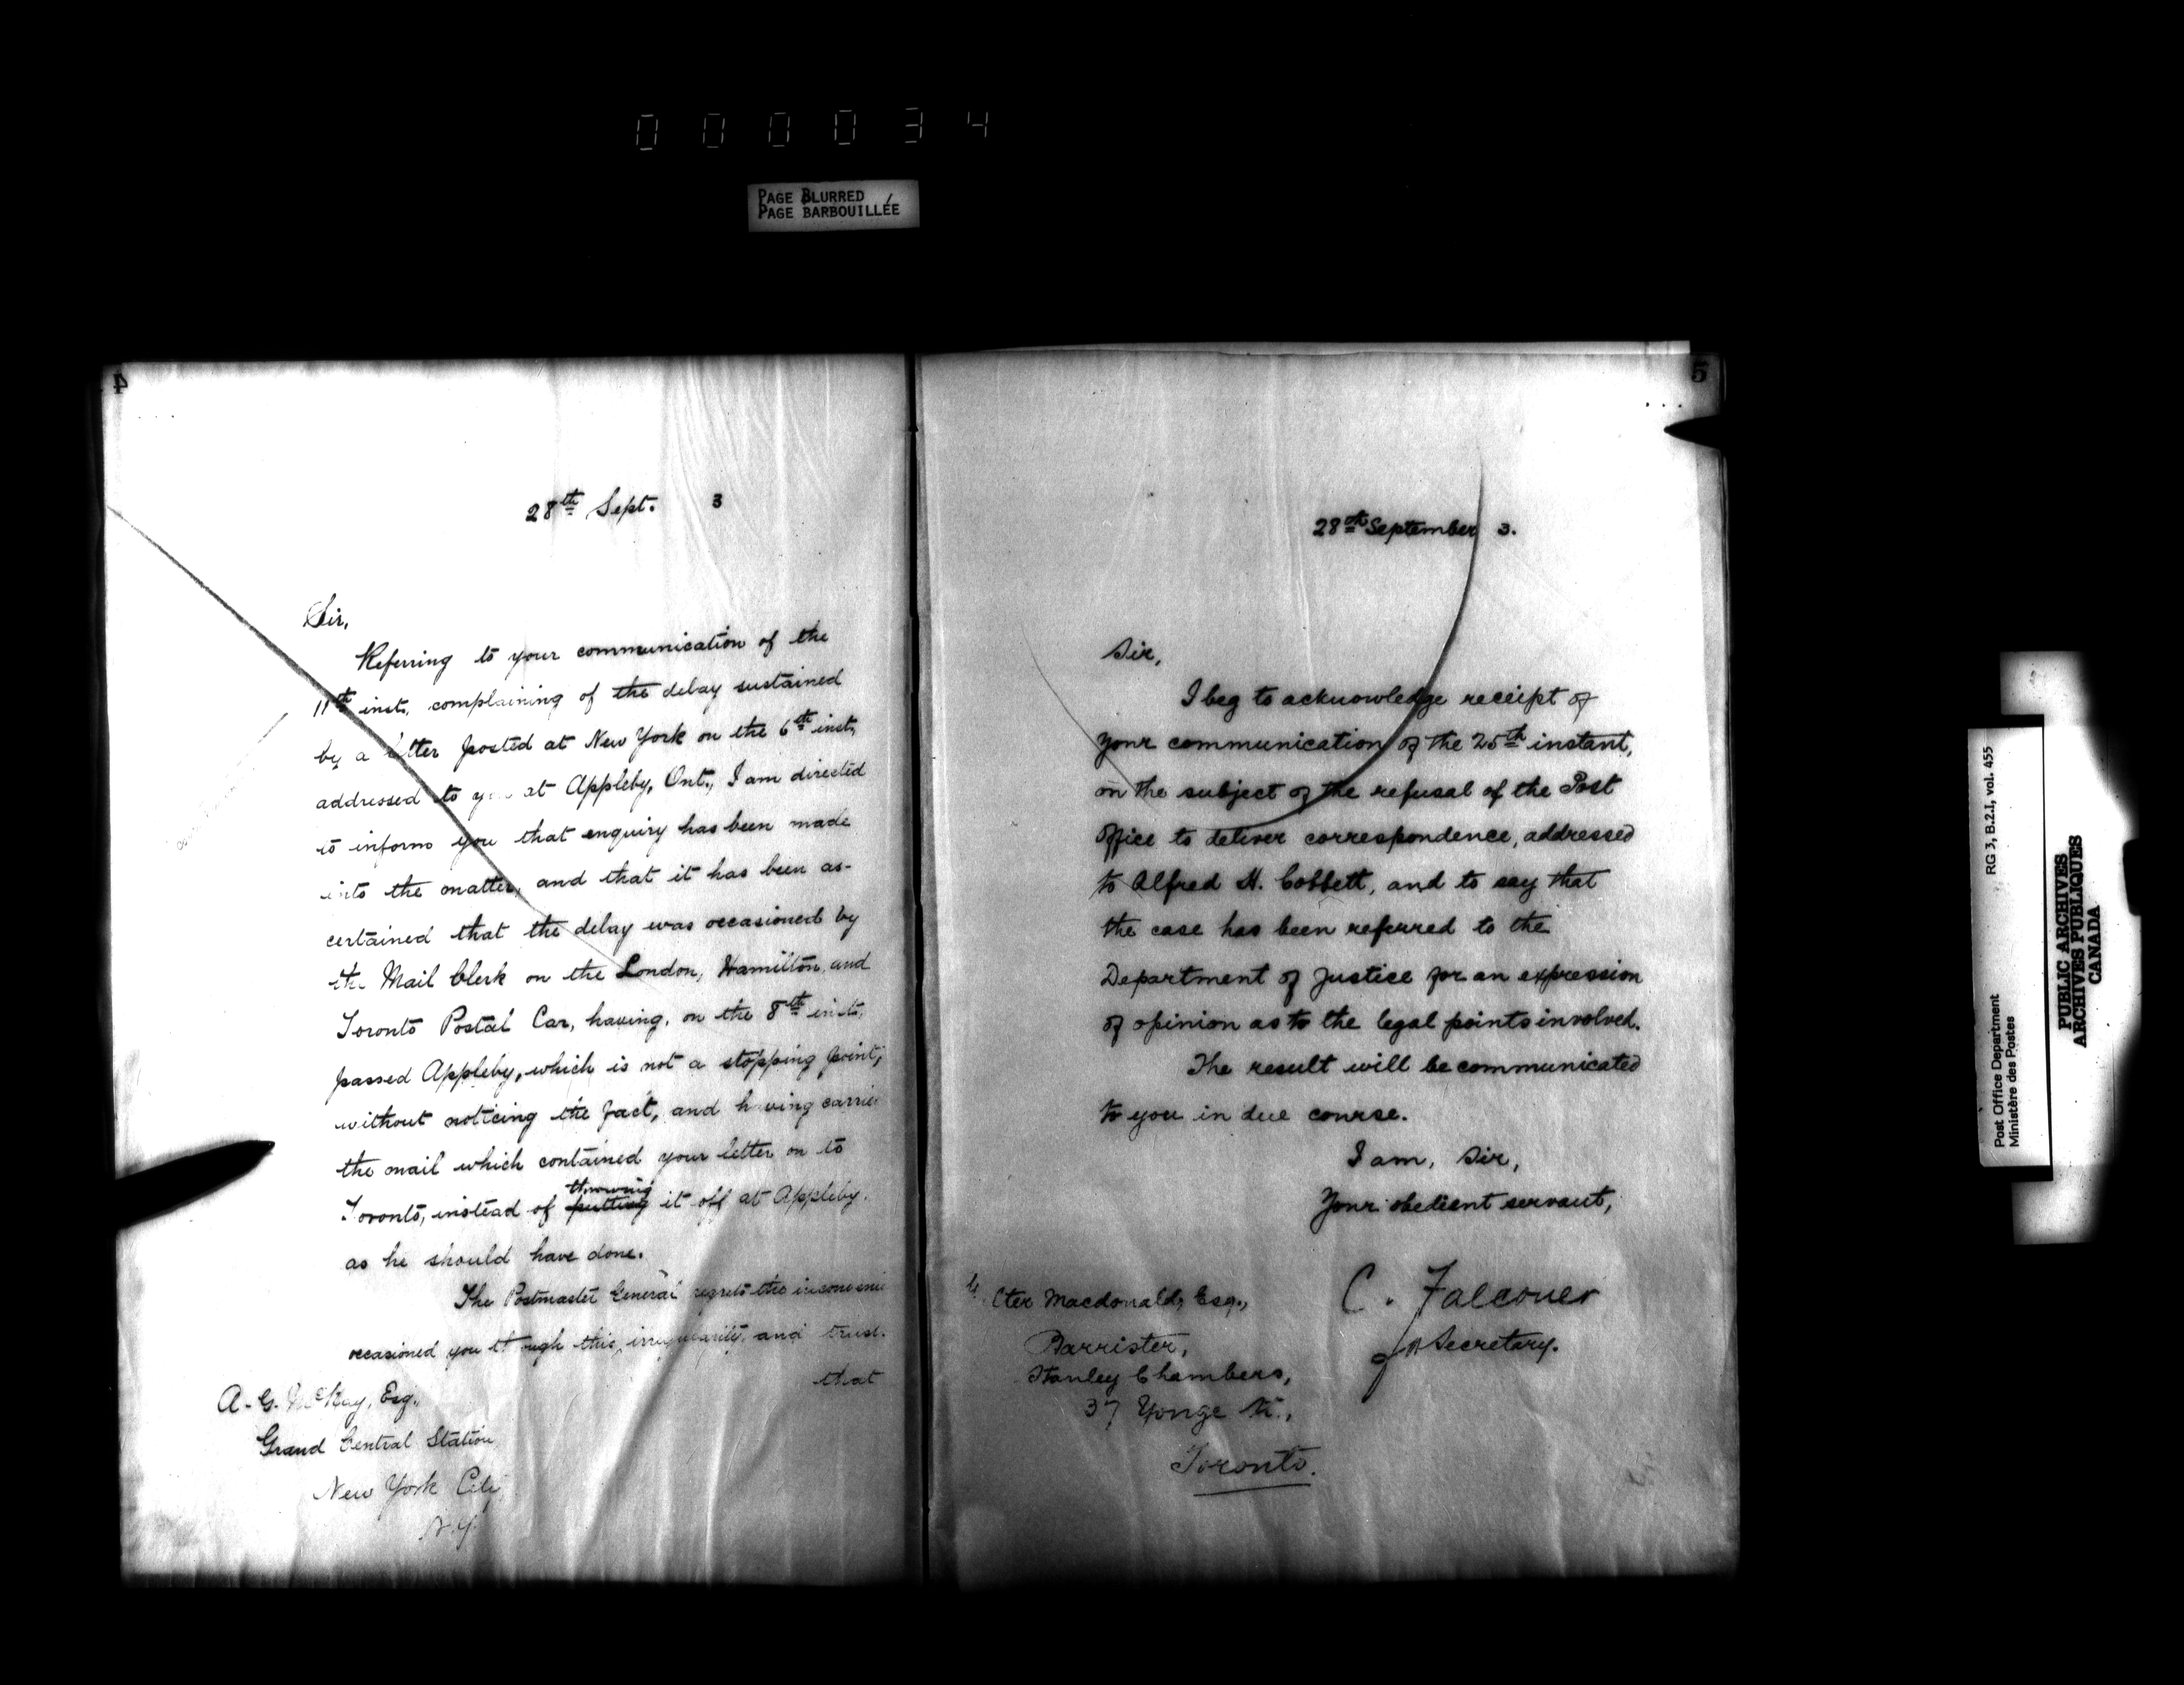 000034
PAGE BLURRED
PAGE BARBOUILLÉE
4
28th Sept. 3
Sir,
Referring to your communication of the
11th inst. complaining of the delay sustained
by a letter posted at New York on the 6th inst,
addressed to you at Appleby, Ont., I am directed
to inform you that enquiry has been made
into the matter, and that it has been as-
certained that the delay was occasioned by
the Mail Clerk on the London, Hamilton, and
Toronto Postal Car, having, on the 8th inst,
passed Appleby, which is not a stopping point,
without noticing the fact, and having carrie
the mail which contained your letter on to
throwing
Toronto, instead of putting it off at Appleby.
as he should have done.
The Postmaster General regrets the inconvenie
occasioned you through this irregularity, and trust.
that
A. G. McKay, Esq.,
Grand Central Station
New York City
N.Y.
5
28th September 3.
Sir,
I beg to acknowledge receipt of
your communication of the 25th instant,
on the subject of the refusal of the Post
Office to deliver correspondence, addressed
to Alfred H. Cobbett, and to say that
the case has been referred to the
Department of Justice for an expression
of opinion as to the legal points involved.
The result will be communicated
to you in due course.
I am, Sir,
Your obedient servant,
C. Falconer
Secretary.
Macdonald, Esq.,
Barrister,
Stanley Chambers,
37 Yonge St.,
Toronto.
RG 3, B.2.1, vol. 455
Post Office Department
Ministère des Postes
PUBLIC ARCHIVES
ARCHIVES PUBLIQUES
CANADA